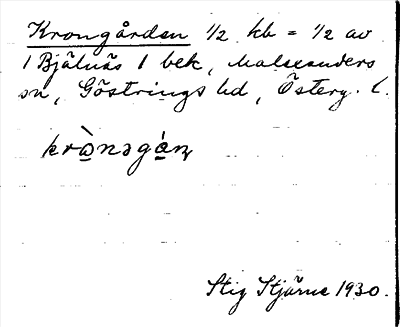 Krongården 1/2 kb = 1/2 av
1 Bjälnäs 1 bek, Malexanders
sn, Göstrings hd, Österg. l.
krò̱nəgá̱ɳ
Stig Stjärne 1930.